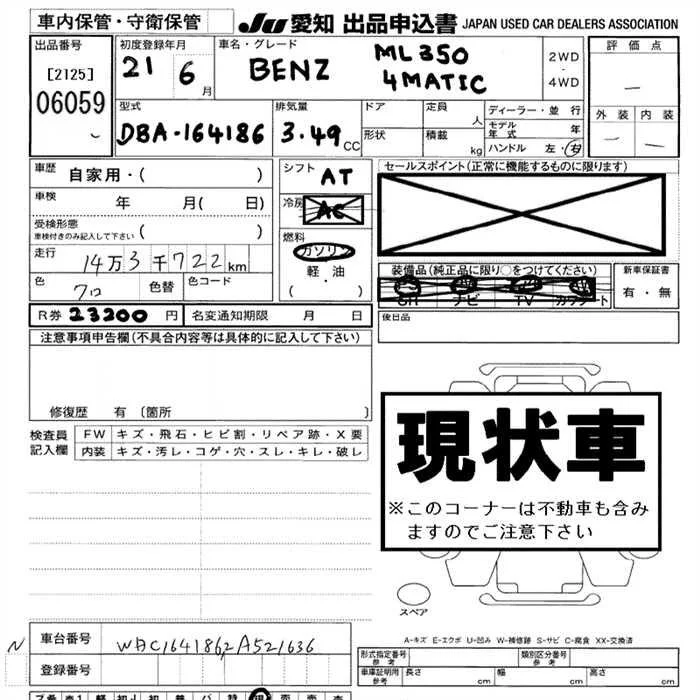 車内保管・守衛保管 JU 愛知 出品申込書 JAPAN USED CAR DEALERS ASSOCIATION
出品番号 [2125] 06059
初度登録年月 21 6 月
車名・グレード BENZ ML350 4MATIC 2WD - 4WD
評価点 —
外装 内装
— —
型式 DBA-164186
排気量 3.49 CC
ドア 形状
定員 人 積載 kg
ディーラー・並行
モデル年式 年
ハンドル 左・右
車歴 自家用・( )
車検 年 月( 日)
受検形態 車検付きのみ記入して下さい ( )
走行 14万3千722km
色 クロ 色替 色コード
シフト AT
冷房 AC
燃料 ガソリン 軽・油 ( ・ )
セールスポイント(正常に機能するものに限ります)
装備品(純正品に限り○をつけてください)
SR ナビ TV カワシート
新車保証書 有・無
R券 23200 円 名変通知期限 月 日
後日品
注意事項申告欄(不具合内容等は具体的に記入して下さい)
修復歴 有〔箇所 〕
検査員記入欄
FW キズ・飛石・ヒビ割・リペア跡・X要
内装 キズ・汚レ・コゲ・穴・スレ・キレ・破レ
現状車
※このコーナーは不動車も含み
ますのでご注意下さい
スペア
A-キズ E-エクボ U-凹み W-補修跡 S-サビ C-腐食 XX-交換済
N 車台番号 WDC1641862A521636
登録番号
形式指定番号 参考 類別区分番号 参考
車庫証明用 参考 長さ cm 幅 cm 高さ cm